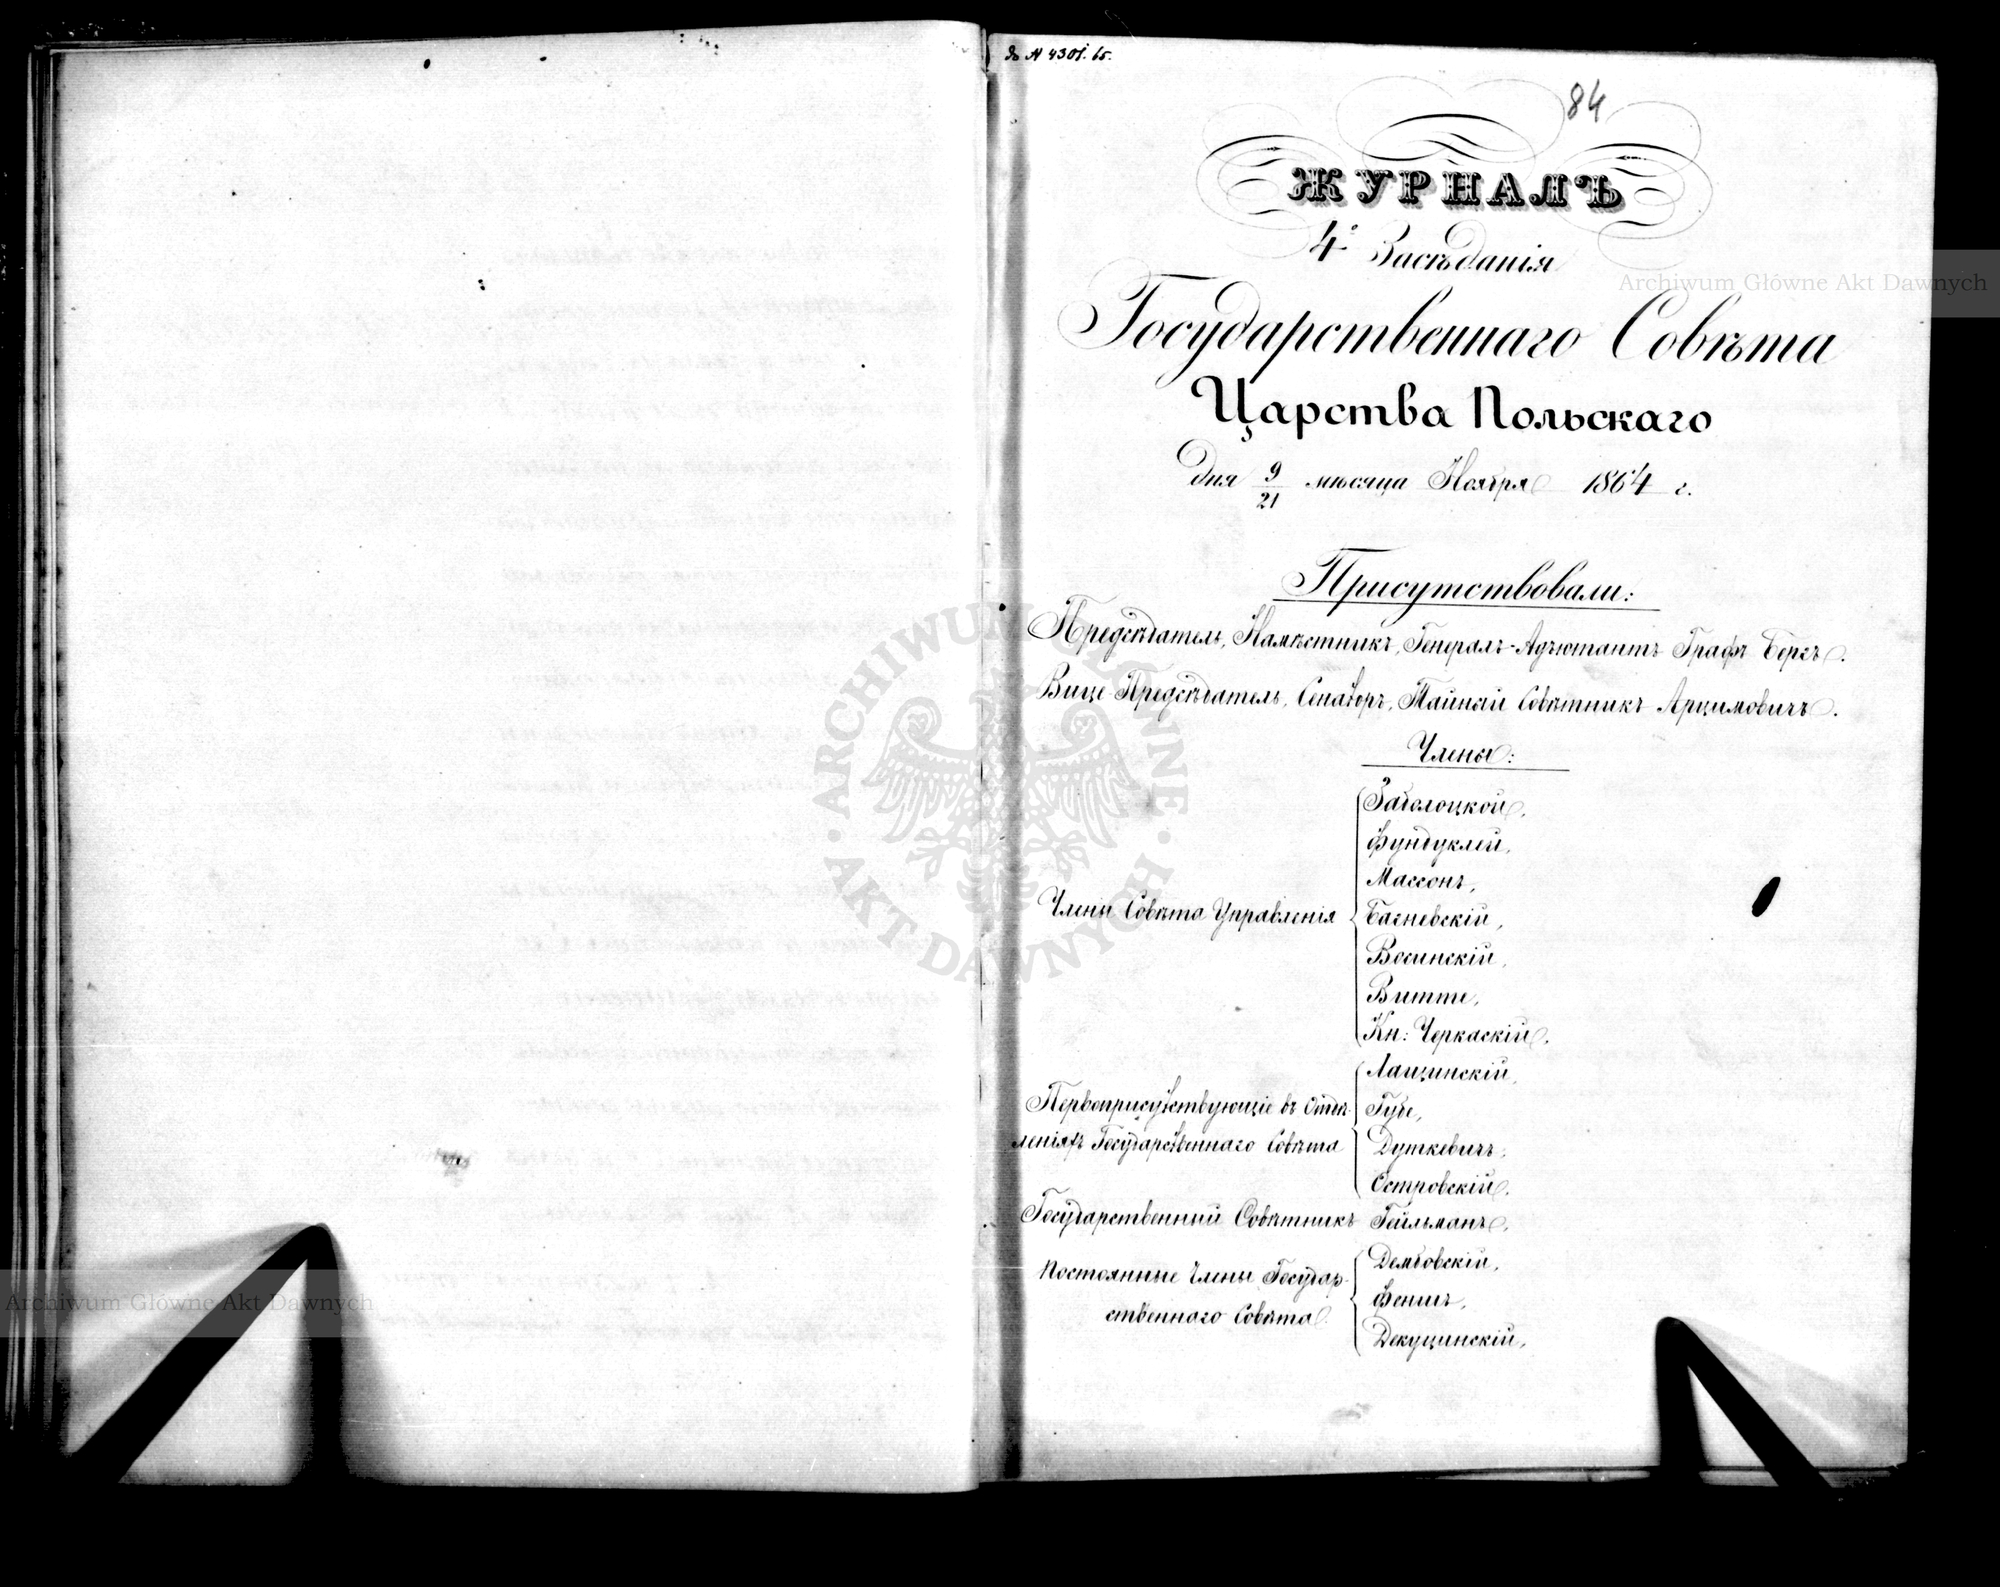 до N 4301. 65.
84
ЖУРНАЛЪ
4º Засѣданія
Государственнаго Совѣта
Царства Польскаго
Дня 9/21 мѣсяца Ноября 1864 г.
Присутствовали:
Предсѣдатель, Намѣстникъ, Генералъ-Адъютантъ Графъ Бергъ.
Вице-Предсѣдатель, Сенаторъ, Тайный Совѣтникъ Арцимовичъ.
Члены:
Члены Совѣта Управленія
Заболоцкой,
Фундуклей,
Массонъ,
Багневскій,
Восинскій,
Витте,
Кн: Черкаскій,
Первоприсутствующіе въ Отдѣ-
леніяхъ Государственнаго Совѣта
Лащинскій,
Губе,
Дуткевичъ,
Островскій,
Государственный Совѣтникъ Гейльманъ,
Постоянные Члены Государ-
ственнаго Совѣта
Дембовскій,
Феншъ,
Декуцинскій,
Archiwum Główne Akt Dawnych
Archiwum Główne Akt Dawnych
ARCHIWUM GŁÓWNE
AKT DAWNYCH